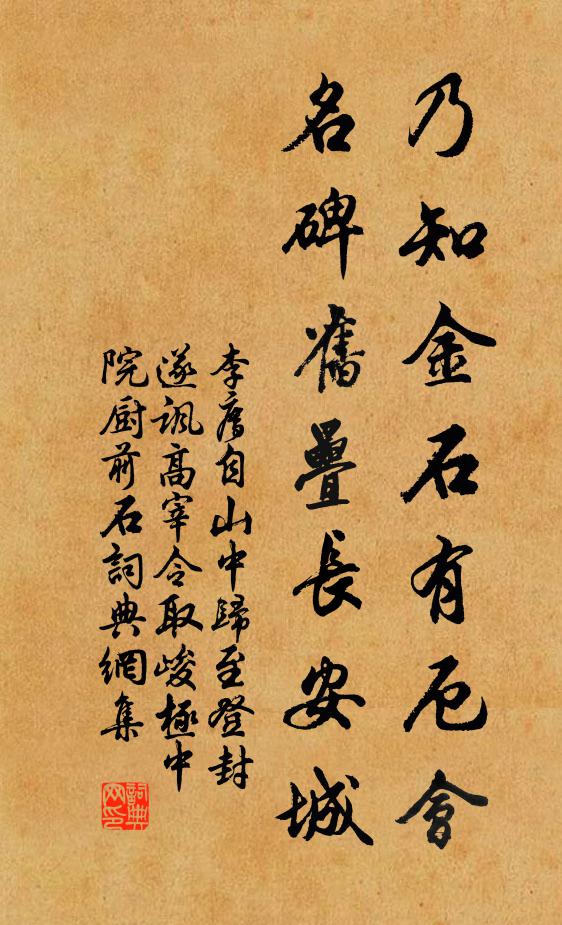 乃知金石有厄會
名碑舊疊長安城
李廌自山中歸至登封
遂諷高宰令取峻極中
院厨前石詞典網集
詞典
网印